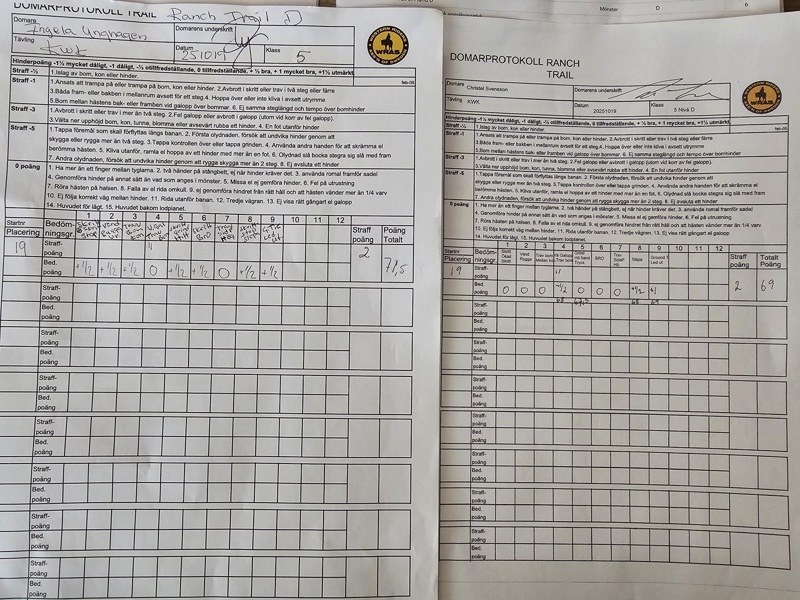 Mönster D 6
DOMARPROTOKOLL TRAIL Ranch Trail D
Domare
Ingela
Domarens underskrift
Tävling
KWK
Datum
251019
Klass
5
WRAS
Hinderpoäng -1½ mycket dåligt, -1 dåligt, -½ otillfredställande, 0 tillfredställande, + ½ bra, + 1 mycket bra, +1½ utmärkt.
Straff -½ 1.Islag av bom, kon eller hinder. feb-05
Straff -1 1.Ansats att trampa på eller trampa på bom, kon eller hinder. 2.Avbrott i skritt eller trav i två steg eller färre
3.Båda fram- eller bakben i mellanrum avsett för ett steg.4. Hoppa över eller inte kliva i avsett utrymme
5.Bom mellan hästens bak- eller framben vid galopp över bommar. 6. Ej samma steglängd och tempo över bomhinder
Straff -3 1.Avbrott i skritt eller trav i mer än två steg. 2.Fel galopp eller avbrott i galopp (utom vid korr av fel galopp).
3.Välta ner upphöjd bom, kon, tunna, blomma eller avsevärt rubba ett hinder. 4. En fot utanför hinder
Straff -5 1.Tappa föremål som skall förflyttas längs banan. 2. Första olydnaden, försök att undvika hinder genom att
skygga eller rygga mer än två steg. 3.Tappa kontrollen över eller tappa grinden. 4. Använda andra handen för att skrämma el
berömma hästen. 5. Kliva utanför, ramla el hoppa av ett hinder med mer än en fot. 6. Olydnad slå bocka stegra sig slå med fram
7. Andra olydnaden, försök att undvika hinder genom att rygga skygga mer än 2 steg. 8. Ej avsluta ett hinder
0 poäng 1. Ha mer än ett finger mellan tyglarna. 2. två händer på stångbett, ej när hinder kräver det. 3. använda romal framför sadel
4. Genomföra hinder på annat sätt än vad som anges i mönster. 5. Missa el ej gemföra hinder. 6. Fel på utrustning
7. Röra hästen på halsen. 8. Falla av el rida omkull. 9. ej genomföra hindret från rätt håll och att hästen vänder mer än 1/4 varv
10. Ej följa korrekt väg mellan hinder. 11. Rida utanför banan. 12. Tredje vägran. 13. Ej visa rätt gångart el galopp
14. Huvudet för lågt. 15. Huvudet bakom lodplanet.
Startnr Bedöm- 1 2 3 4 5 6 7 8 9 10 11 12 Straff Poäng
Placering ningsgr. poäng Totalt
19 Straff-poäng 2 71,5
Bed. poäng +½ +½ +½ 0 +½ +½ 0 +½ +½
Straff-poäng
Bed. poäng
Straff-poäng
Bed. poäng
Straff-poäng
Bed. poäng
Straff-poäng
Bed. poäng
Straff-poäng
Bed. poäng
Straff-poäng
Bed. poäng
Straff-poäng
DOMARPROTOKOLL RANCH
TRAIL
Domare
Christel Svensson
Domarens underskrift
Tävling
KWK
Datum
20251019
Klass
5 Nivå D
WRAS
Hinderpoäng -1½ mycket dåligt, -1 dåligt, -½ otillfredställande, 0 tillfredställande, + ½ bra, + 1 mycket bra, +1½ utmärkt.
Straff -½ 1.Islag av bom, kon eller hinder. feb-05
Straff -1 1.Ansats att trampa på eller trampa på bom, kon eller hinder. 2.Avbrott i skritt eller trav i två steg eller färre
3.Båda fram- eller bakben i mellanrum avsett för ett steg.4. Hoppa över eller inte kliva i avsett utrymme
5.Bom mellan hästens bak- eller framben vid galopp över bommar. 6. Ej samma steglängd och tempo över bomhinder
Straff -3 1.Avbrott i skritt eller trav i mer än två steg. 2.Fel galopp eller avbrott i galopp (utom vid korr av fel galopp).
3.Välta ner upphöjd bom, kon, tunna, blomma eller avsevärt rubba ett hinder. 4. En fot utanför hinder
Straff -5 1.Tappa föremål som skall förflyttas längs banan. 2. Första olydnaden, försök att undvika hinder genom att
skygga eller rygga mer än två steg. 3.Tappa kontrollen över eller tappa grinden. 4. Använda andra handen för att skrämma el
berömma hästen. 5. Kliva utanför, ramla el hoppa av ett hinder med mer än en fot. 6. Olydnad slå bocka stegra sig slå med fram
7. Andra olydnaden, försök att undvika hinder genom att rygga skygga mer än 2 steg. 8. Ej avsluta ett hinder
0 poäng 1. Ha mer än ett finger mellan tyglarna. 2. två händer på stångbett, ej när hinder kräver det. 3. använda romal framför sadel
4. Genomföra hinder på annat sätt än vad som anges i mönster. 5. Missa el ej gemföra hinder. 6. Fel på utrustning
7. Röra hästen på halsen. 8. Falla av el rida omkull. 9. ej genomföra hindret från rätt håll och att hästen vänder mer än 1/4 varv
10. Ej följa korrekt väg mellan hinder. 11. Rida utanför banan. 12. Tredje vägran. 13. Ej visa rätt gångart el galopp
14. Huvudet för lågt. 15. Huvudet bakom lodplanet.
Startnr Bedöm- 1 2 3 4 5 6 7 8 9 10 11 12 Straff Totalt
Placering ningsgr. BRO poäng Poäng
19 Straff-poäng 2 69
Bed. poäng 0 0 0 -½ 0 0 0 +½ +1
68 67,5 68 69
Straff-poäng
Bed. poäng
Straff-poäng
Bed. poäng
Straff-poäng
Bed. poäng
Straff-poäng
Bed. poäng
Straff-poäng
Bed. poäng
Straff-poäng
Bed. poäng
Straff-poäng
Bed. poäng